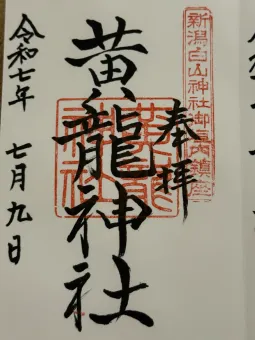 新潟白山神社御境内鎮座
奉拝
黄龍神社
令和七年 七月九日